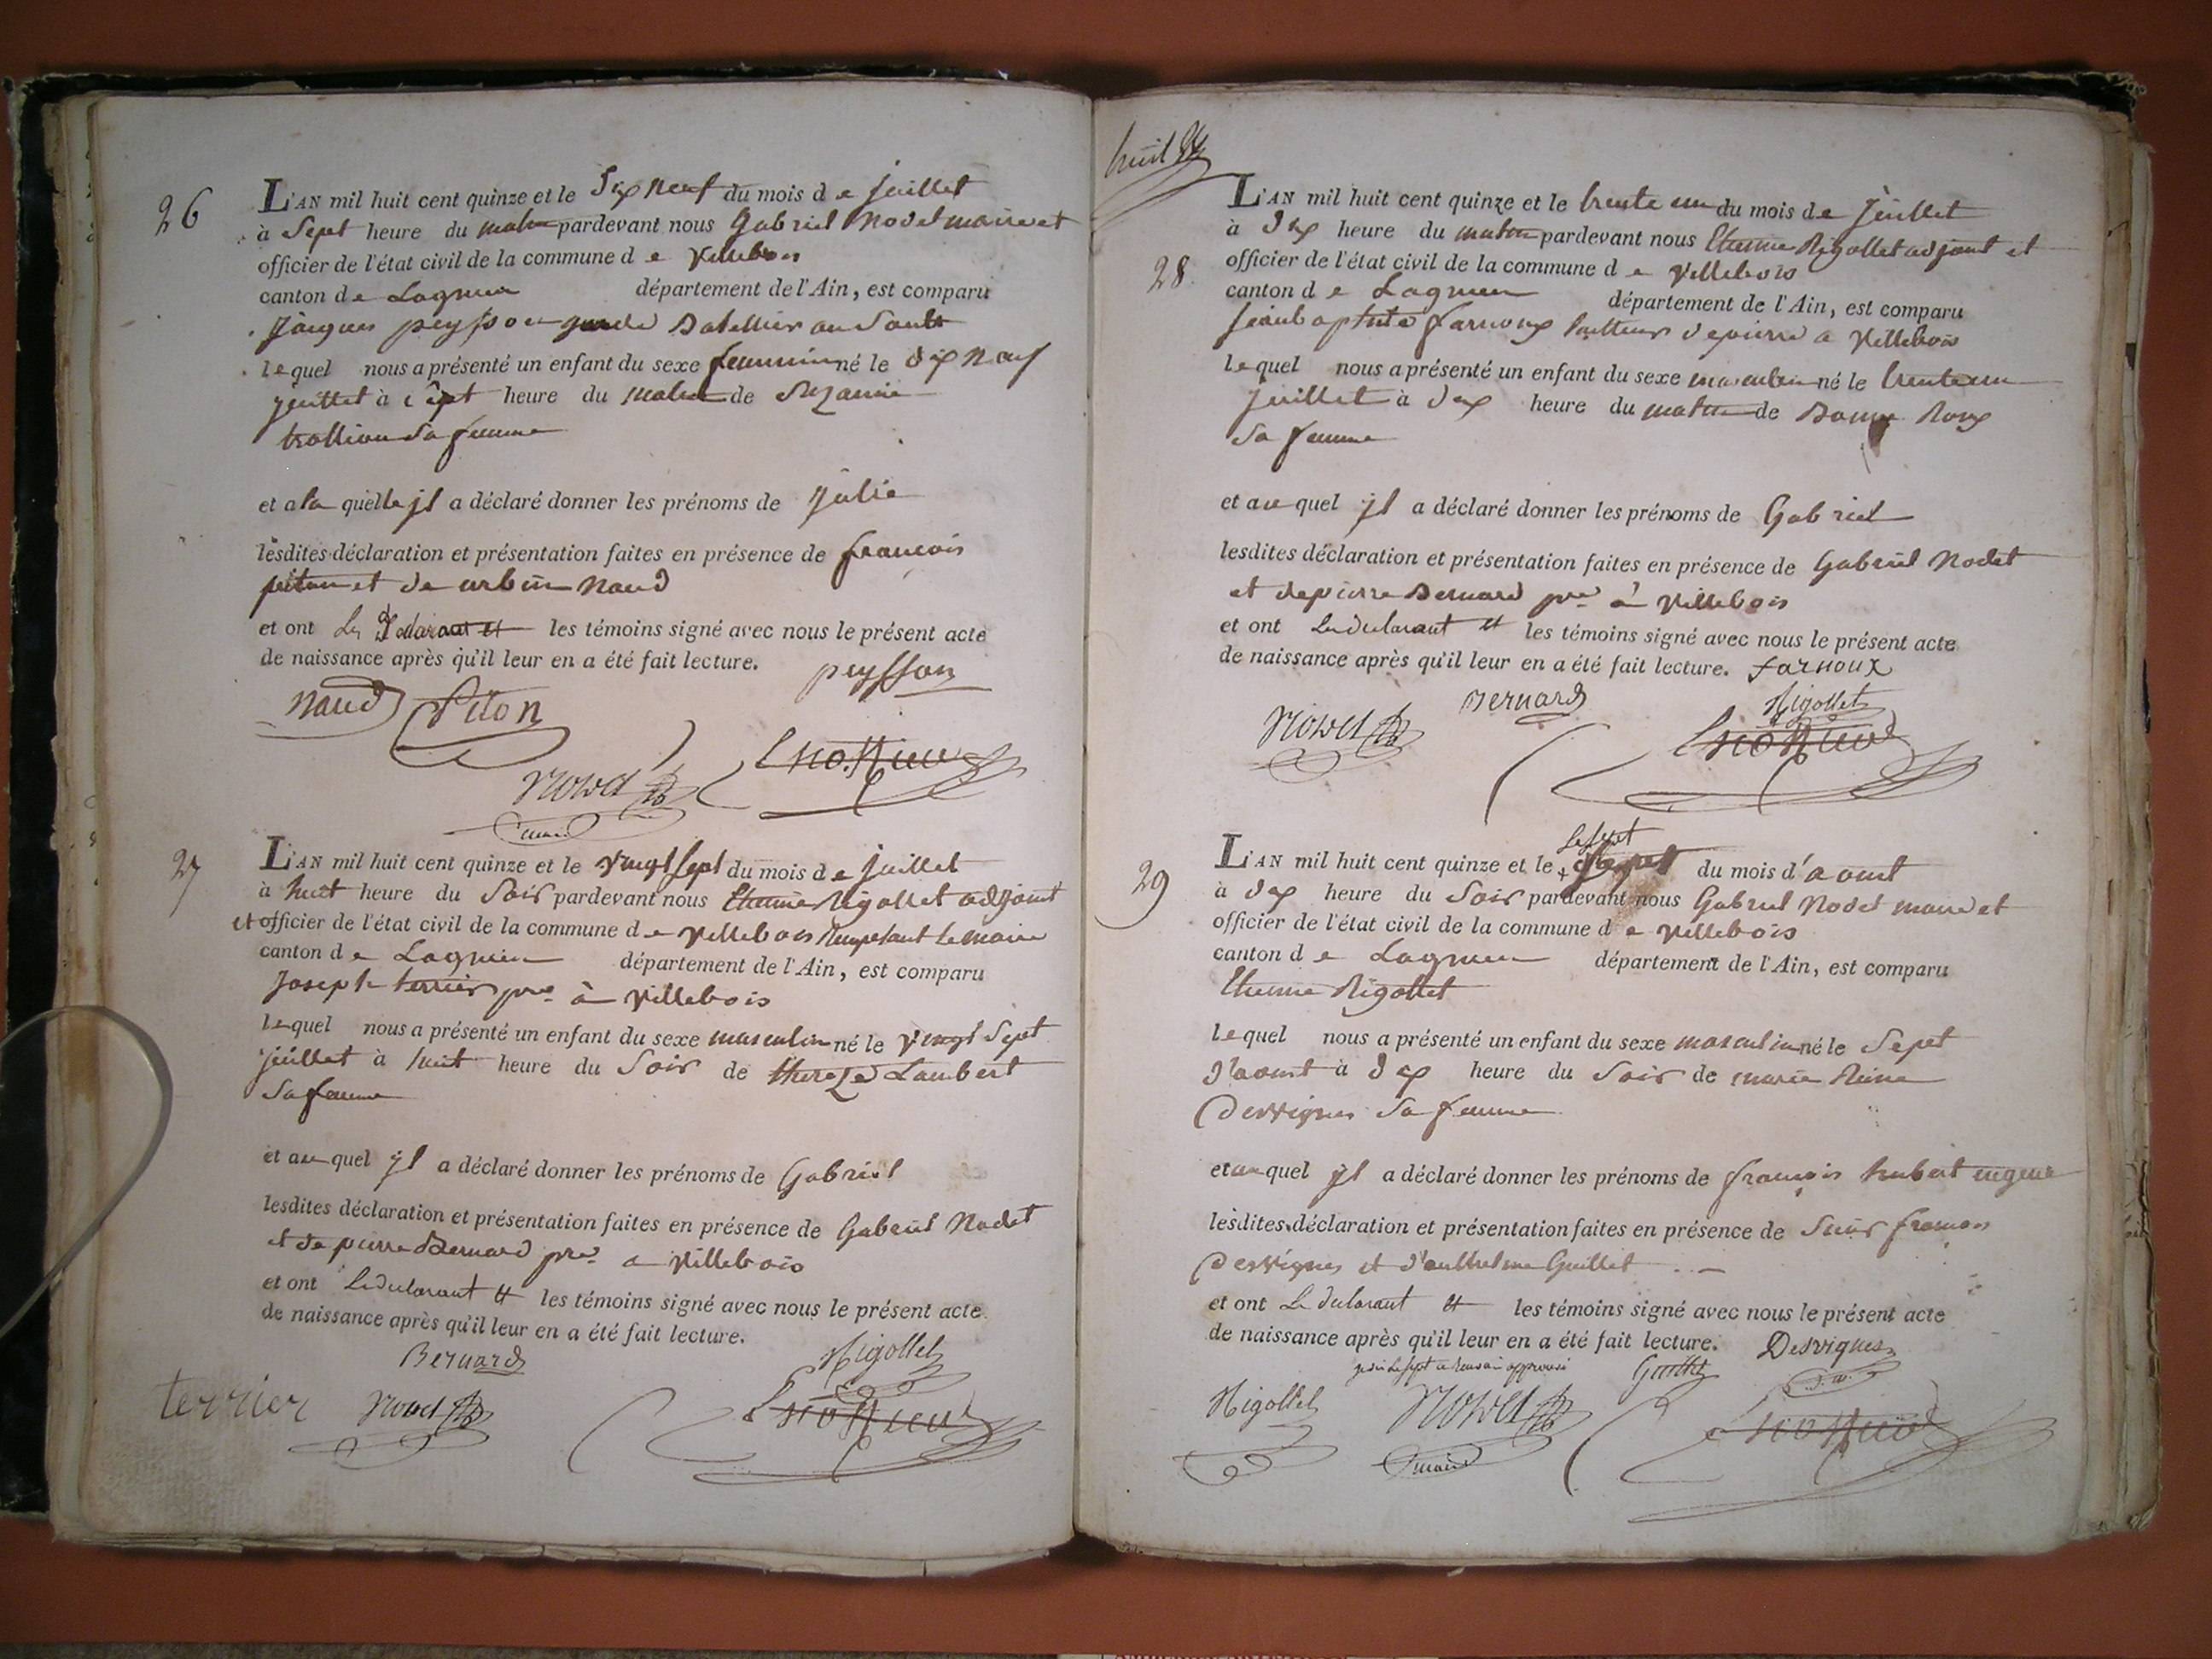 26
L'AN mil huit cent quinze et le dix neuf du mois de juillet
à Sept heure du matin pardevant nous Gabriel Nodet maire et
officier de l'état civil de la commune de villebois
canton de Lagnieu département de l'Ain, est comparu
Jâcques peysson garde Batellier au Sault
lequel nous a présenté un enfant du sexe feminin né le dix neuf
juillet à sept heure du matin de Suzanne
trollion sa femme
et a la quelle jl a déclaré donner les prénoms de julie
lesdites déclaration et présentation faites en présence de françois
piton et de urbin naud
et ont Le Declarant et les témoins signé avec nous le présent acte
de naissance après qu'il leur en a été fait lecture. peysson
naud Piton
Nodet
maire
27
L'AN mil huit cent quinze et le vingt sept du mois de juillet
à huit heure du Soir pardevant nous Etienne Rigollet adjoint
et officier de l'état civil de la commune de villebois remplasant le maire
canton de Lagnieu département de l'Ain, est comparu
Joseph terrier pre à villebois
lequel nous a présenté un enfant du sexe masculin né le vingt Sept
juillet à huit heure du Soir de thereze Lambert
sa femme
et au quel jl a déclaré donner les prénoms de Gabriel
lesdites déclaration et présentation faites en présence de Gabriel Nodet
et de pierre Bernard pre a villebois
et ont Le declarant et les témoins signé avec nous le présent acte
de naissance après qu'il leur en a été fait lecture.
Bernard Rigollet
terrier Nodet
huit
28
L'AN mil huit cent quinze et le trente un du mois de juillet
à dix heure du matin pardevant nous Etienne Rigollet adjoint et
officier de l'état civil de la commune de villebois
canton de Lagnieu département de l'Ain, est comparu
jean baptiste farnoux tailleur de pierre a villebois
lequel nous a présenté un enfant du sexe masculin né le trente un
juillet à dix heure du matin de Roux
sa femme
et au quel jl a déclaré donner les prénoms de Gabriel
lesdites déclaration et présentation faites en présence de Gabriel Nodet
et de pierre Bernard pre à villebois
et ont Le declarant et les témoins signé avec nous le présent acte
de naissance après qu'il leur en a été fait lecture. farnoux
Nodet Bernard Rigollet
29
Le sept
L'AN mil huit cent quinze et le du mois d'aoust
à dix heure du Soir pardevant nous Gabriel Nodet maire et
officier de l'état civil de la commune de villebois
canton de Lagnieu département de l'Ain, est comparu
Etienne Rigollet
lequel nous a présenté un enfant du sexe masculin né le Sept
d'aoust à dix heure du Soir de marie Reine
Desvignes sa femme
et au quel jl a déclaré donner les prénoms de françois hubert eugene
lesdites déclaration et présentation faites en présence de Sieur françois
Desvignes et d'anthelme Guillet
et ont Le declarant et les témoins signé avec nous le présent acte
de naissance après qu'il leur en a été fait lecture. Desvignes
Le sept au renvoi approuvé Guillet
Rigollet Nodet
maire